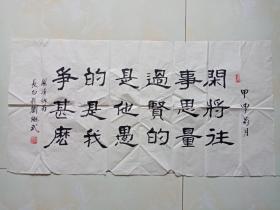 甲申月
閑將往
事思量
過賢的
是他愚
的是我
爭甚麼